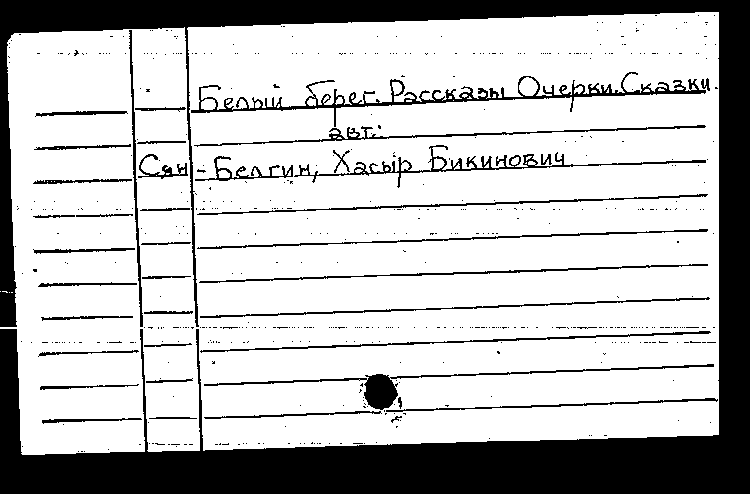 Белый берег. Рассказы Очерки. Сказки.
авт.:
Сян-Белгин, Хасыр Бикинович